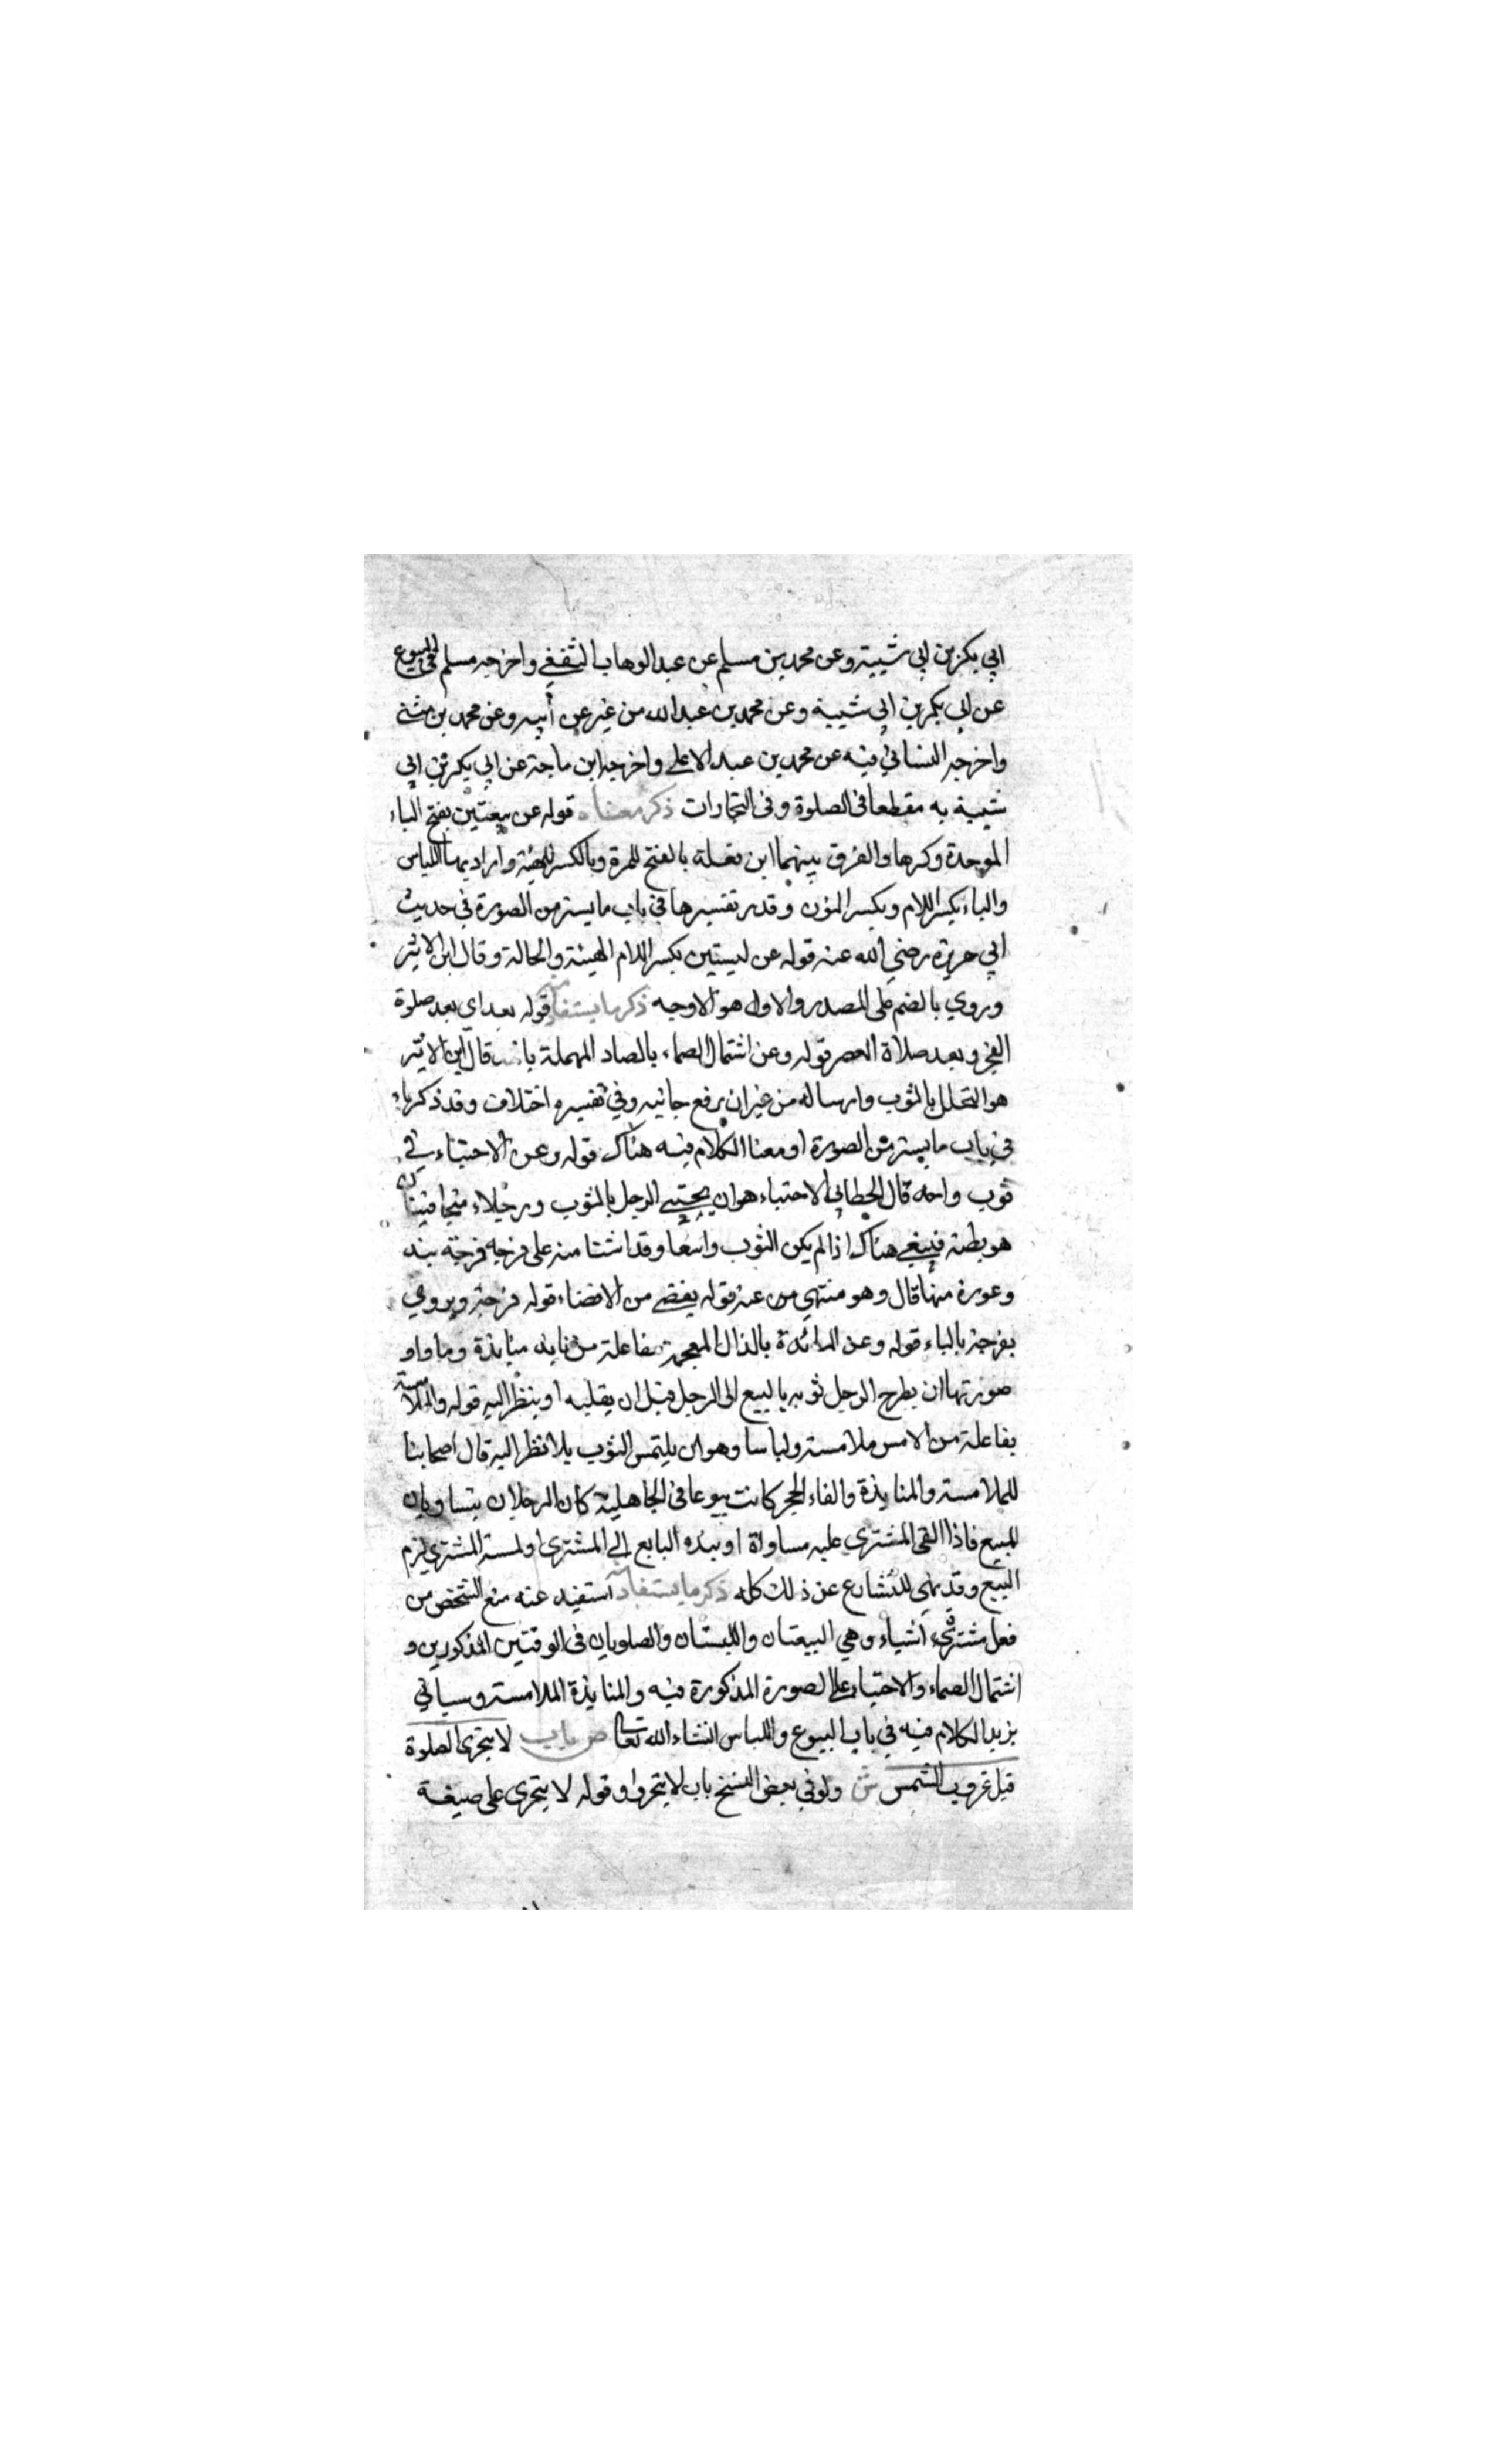 ابي بكر بن ابي شيبة وعن محمد بن مسلم عن عبد الوهاب الثقفي واخرجه مسلم في البيوع
عن ابي بكر بن ابي شيبة وعن محمد بن عبد الله من غير عن أبيه وعن محمد بن مثنى
واخرجه النسائي فيه عن محمد بن عبد الاعلى واخرجه ابن ماجة عن ابي بكر بن ابي
شيبة به مقطعا في الصلوة وفي التجارات ذكر معناه قوله عن بيعتين بفتح الباء
الموحدة وكرها والفرق بينهما ابن فعلة بالفتح للمرة وبالكسر للهيئة واراد بهما اللباس
والباء بكسر اللام وبكسر النون وقد مر تفسيرها في باب ما يستر من الصورة في حديث
ابي هريرة رضي الله عنه قوله عن لبستين بكسر اللام الهيئة والحالة وقال ابن الاثير
وروي بالضم على المصدر والاول هو الاوجه ذكر ما يستفاد منه قوله بعد اي بعد صلوة
الفجر وبعد صلاة العصر قوله وعن اشتمال الصماء بالصاد المهملة قال ابن الاثير
هو التحلل بالثوب وارساله من غير ان يرفع جانبه وفي تفسيره اختلاف وقد ذكرناه
في باب ما يستر من الصورة او معنا الكلام فيه هناك قوله وعن الاحتباء في
ثوب واحد قال الخطابي الاحتباء هو ان يحتبي الرجل بالثوب ورجلاه متجافيتان
هو بطنه فيبقى هناك اذا لم يكن الثوب واسعا وقد اشتا منه على فرجه فرجة
وعورة منها قال وهو منتهي من عنه قوله يفضي من الافضاء قوله فرجه ويروي
بفرجه بالباء قوله وعن المنابذة بالذال المعجمة مفاعلة من نابذه منابذة
صورتها ان يطرح الرجل ثوبه بالبيع الى الرجل قبل ان يقلبه او ينظر اليه قوله والملامسة
بفاعلة من الامس ملامسة ولباسا وهو ان يلتمس الثوب بلا نظر اليه قال اصحابنا
للملامسة والمنابذة والقاء الحجر كانت بيوعا في الجاهلية كان الرجلان يتساويان
المبيع فاذا القى المشترى عليه مساواة او نبذه البايع الى المشترى او لمسه المشترى لزم
البيع وقد نهي للشارع عن ذلك كله ذكر ما يستفاد منه استفيد عنه منع الشخص من
فعل اشياء وهي البيعتان واللبستان والصلوتان في الوقتين المذكورين و
اشتمال الصماء والاحتباء على الصورة المذكورة فيه والمنابذة الملامسة وسيأتي
بزيد الكلام فيه في باب البيوع واللباس انشاء الله تعالى ص باب لا يتحرى الصلوة
قبل غروب الشمس ش ولو في بعض النسخ باب لا يتحروا وقوله لا يتحرى على صيغة